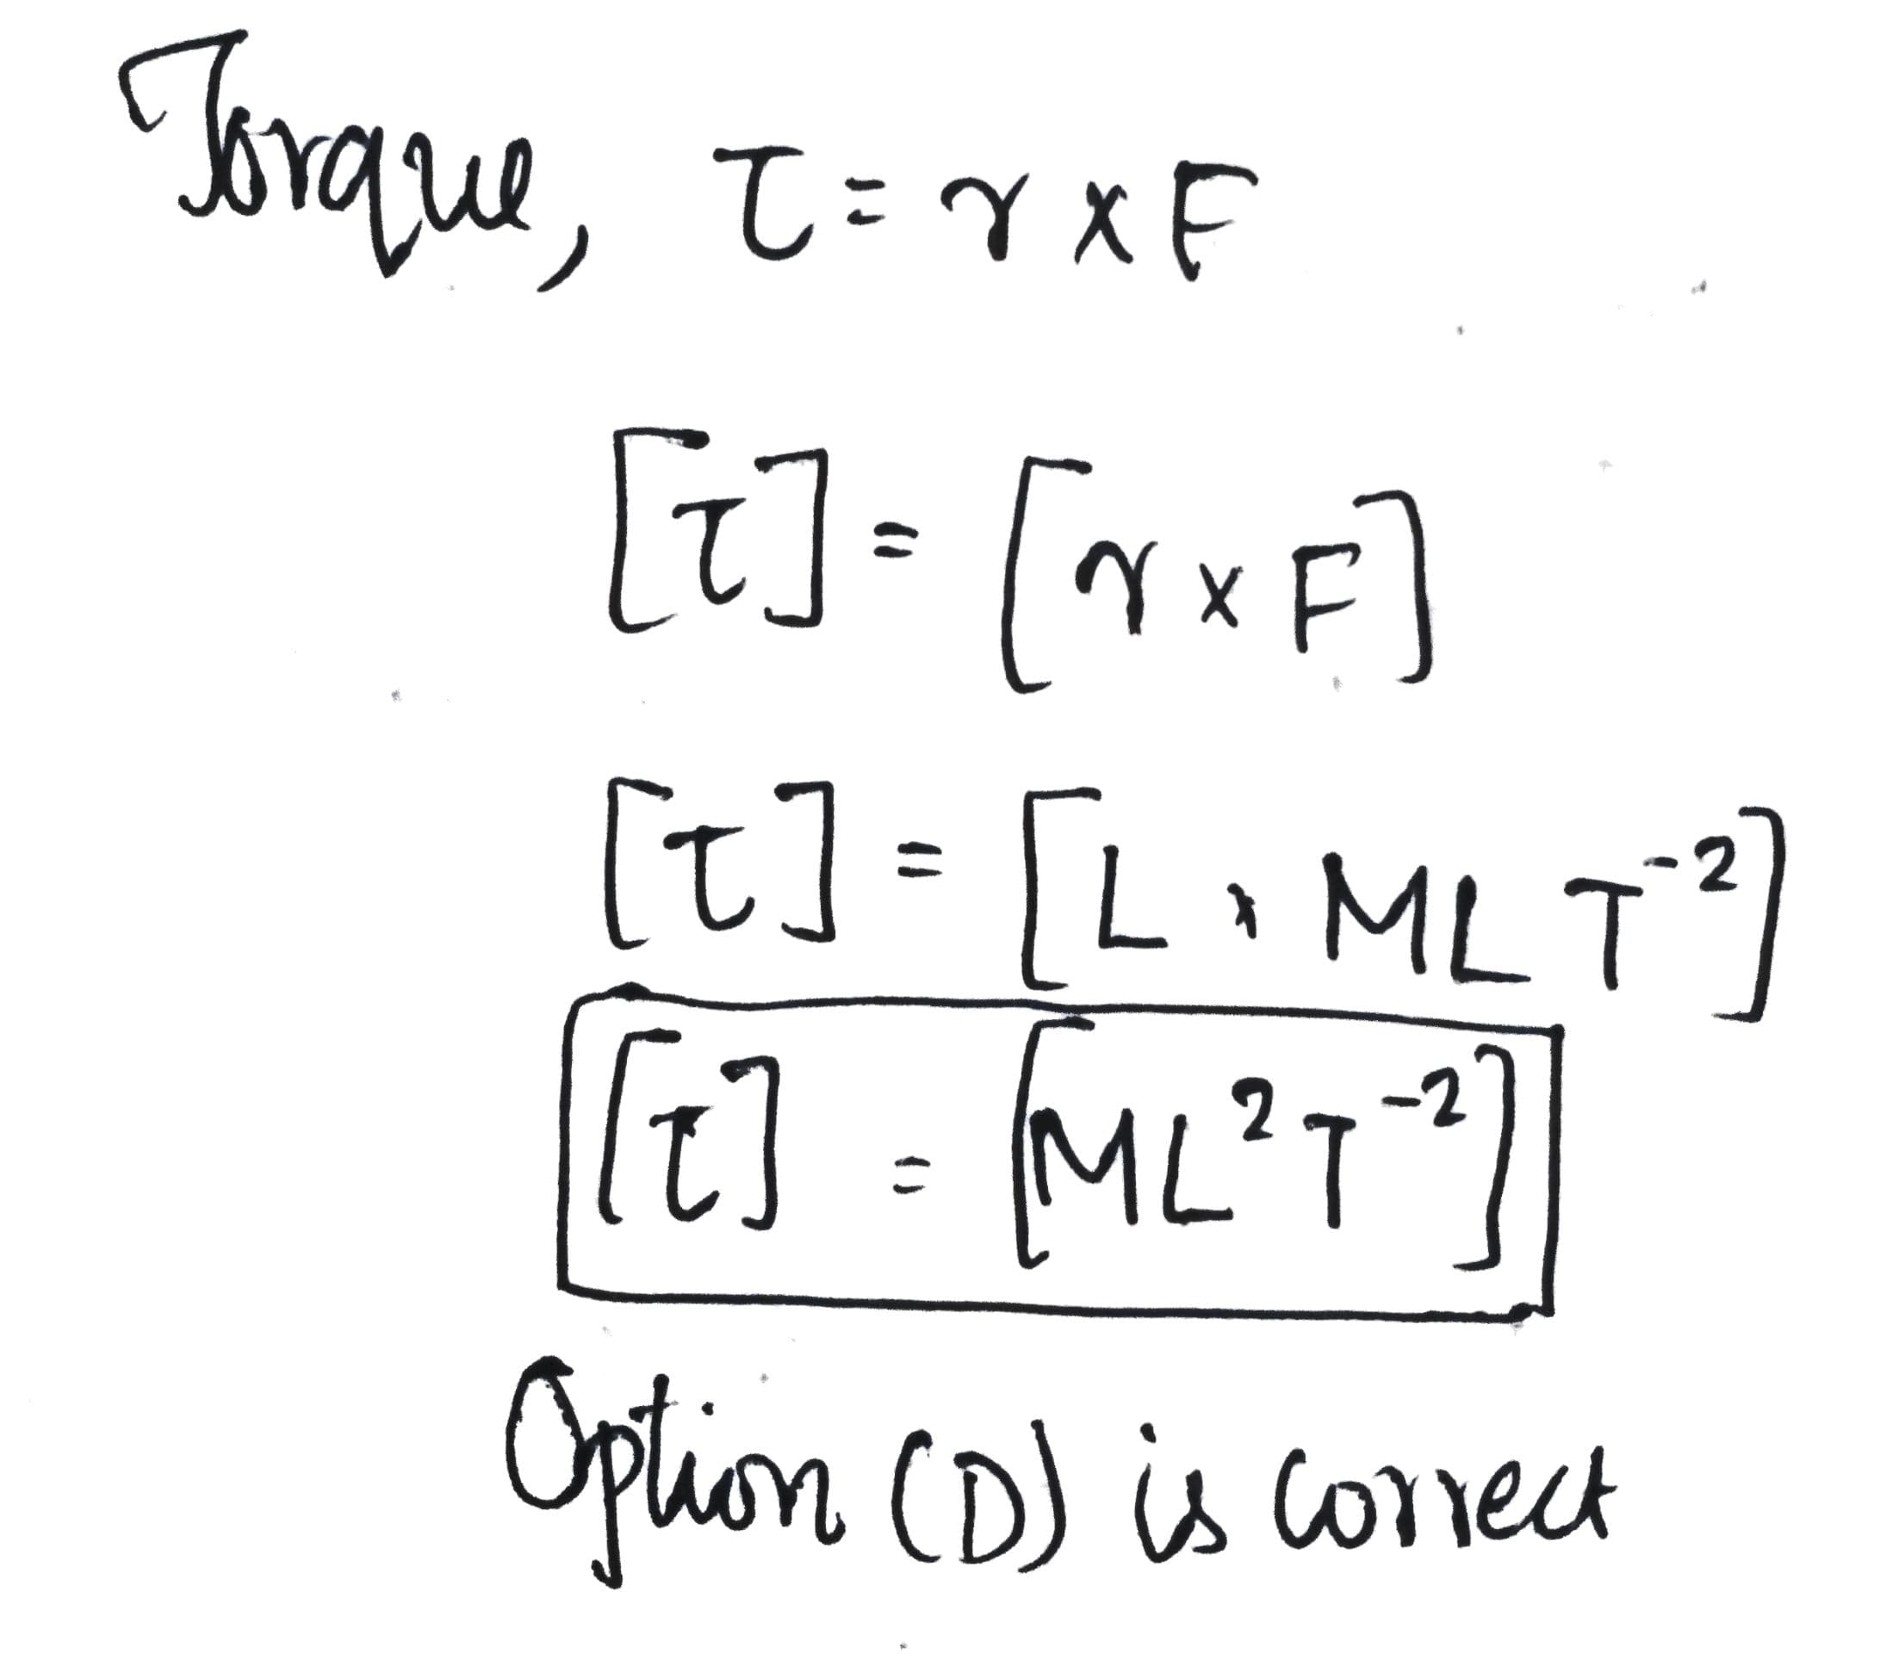 Torque, τ = r × F
[τ] = [r × F]
[τ] = [L × MLT⁻²]
[τ] = [ML²T⁻²]
Option (D) is correct